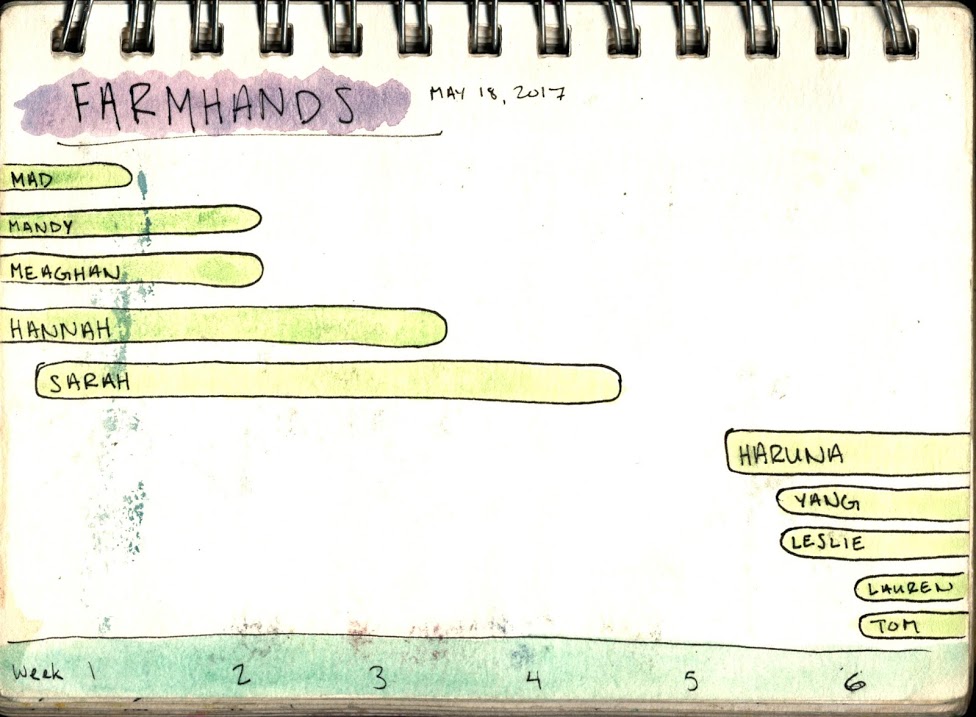 FARMHANDS MAY 18, 2017
MAD
MANDY
MEAGHAN
HANNAH
SARAH
HARUNA
YANG
LESLIE
LAUREN
TOM
Week 1 2 3 4 5 6